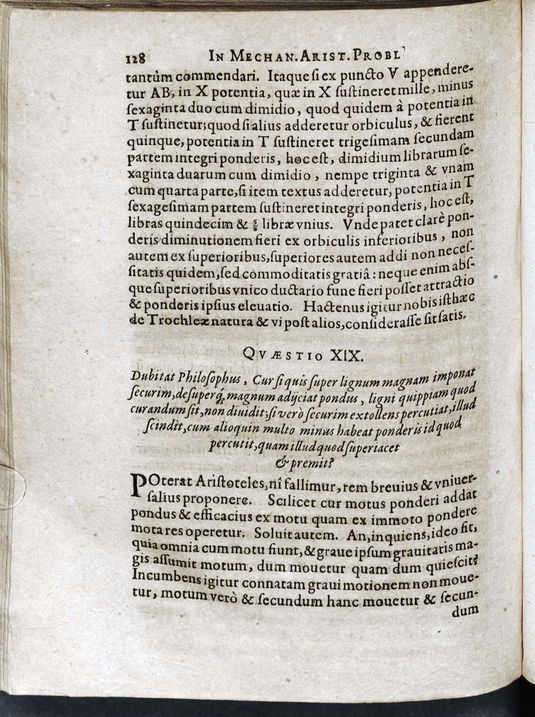 128 IN MECHAN. ARIST. PROBL
tantùm commendari. Itaque si ex puncto V appendere-
tur AB, in X potentia, quæ in X sustineret mille, minus
sexaginta duo cum dimidio, quod quidem à potentia in
T sustinetur; quod si alius adderetur orbiculus, & fierent
quinque, potentia in T sustineret trigesimam secundam
partem integri ponderis, hoc est, dimidium librarum se-
xaginta duarum cum dimidio, nempe triginta & vnam
cum quarta parte, si item textus adderetur, potentia in T
sexagesimam partem sustineret integri ponderis, hoc est,
libras quindecim & libræ vnius. Vnde patet clarè pon-
deris diminutionem fieri ex orbiculis inferioribus, non
autem ex superioribus, superiores autem addi non neces-
sitatis quidem, sed commoditatis gratiâ: neque enim abs-
que superioribus vnico ductario fune fieri posset attractio
& ponderis ipsius eleuatio. Hactenus igitur nobis isthæc
de Trochleæ natura & vi post alios, considerasse sit satis.
QVÆSTIO XIX.
Dubitat Philosophus, Cur si quis super lignum magnam imponat
securim, desuperq́, magnum adijciat pondus, ligni quippiam quod
curandum sit, non diuidit; si verò securim extollens percutiat, illud
scindit, cum alioquin multo minus habeat ponderis id quod
percutit, quam illud quod superiacet
& premit?
POterat Aristoteles, nî fallimur, rem breuius & vniuer-
salius proponere. Scilicet cur motus ponderi addat
pondus & efficacius ex motu quam ex immoto pondere
mota res operetur. Soluit autem. An, inquiens, ideo fit,
quia omnia cum motu fiunt, & graue ipsum grauitatis ma-
gis assumit motum, dum mouetur quam dum quiescit?
Incumbens igitur connatam graui motionem non moue-
tur, motum verò & secundum hanc mouetur & secun-
dum